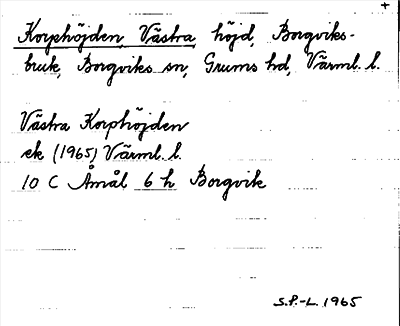 +
Korphöjden, Västra, höjd, Borgviks-
bruk, Borgviks sn, Grums hd, Värml. l.
Västra Korphöjden
ek (1965) Värml. l.
10 C Åmål 6 h Borgvik
S.P.-L. 1965